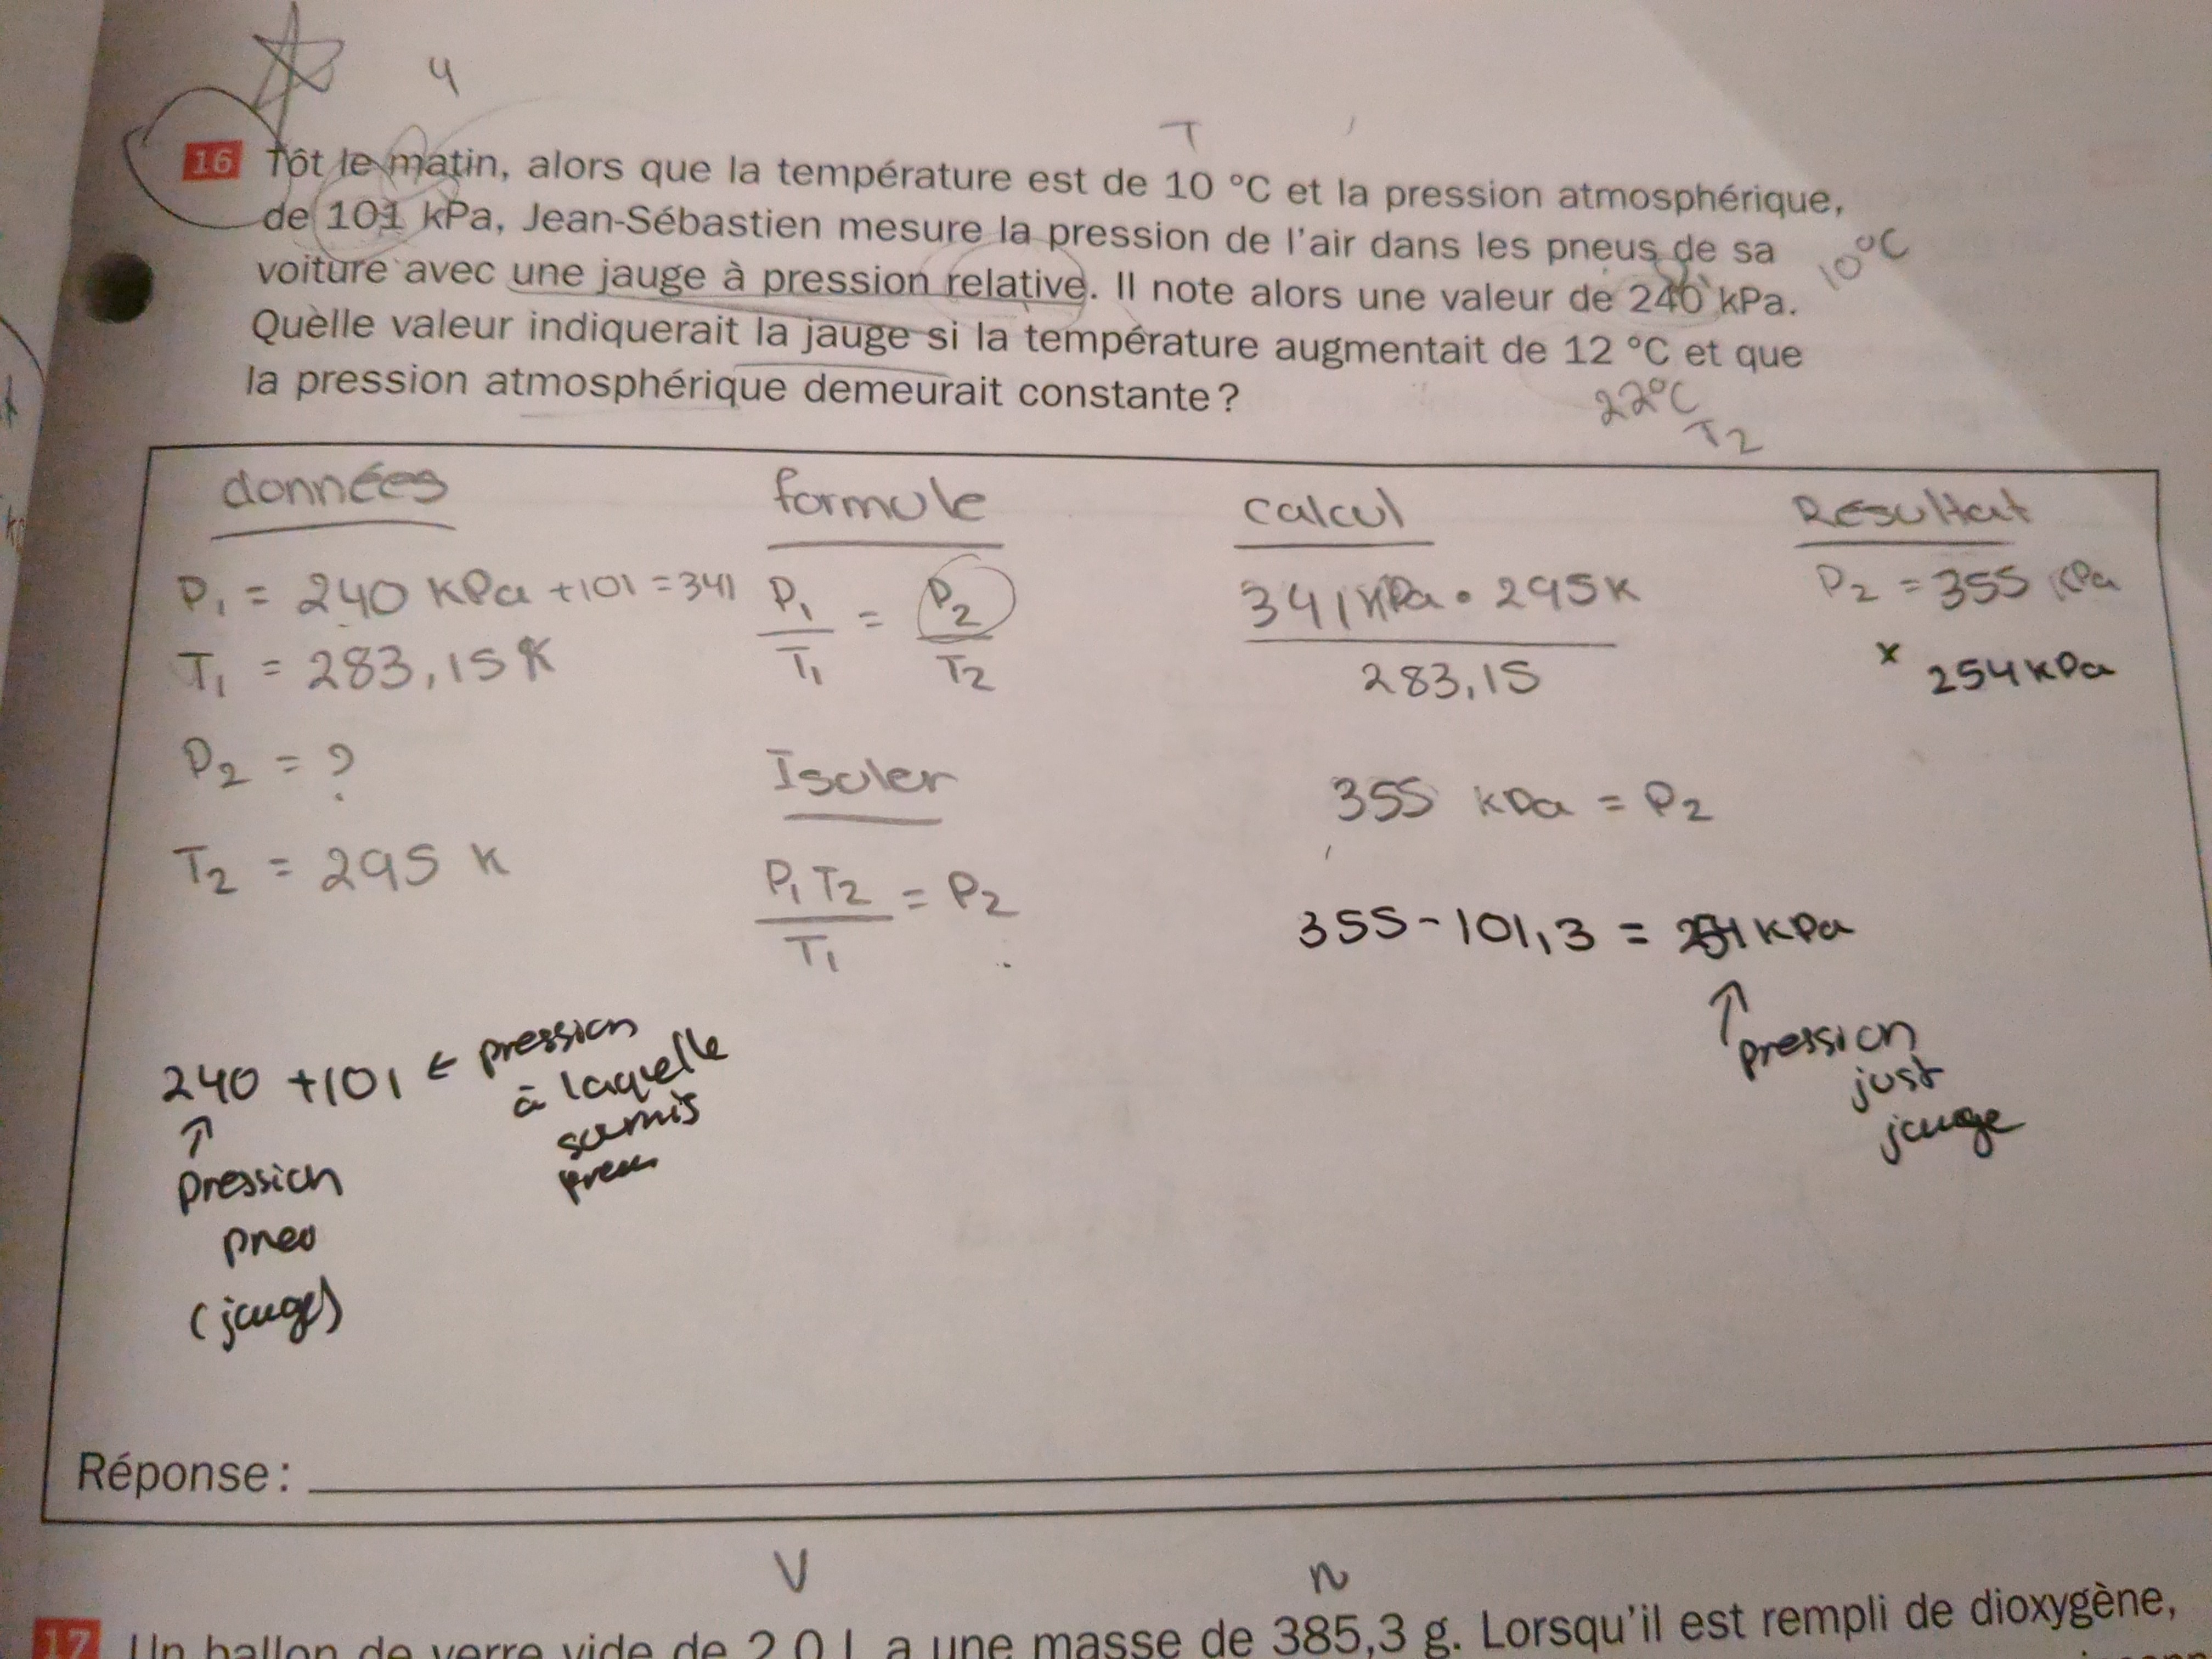 4
T
16 Tôt le matin, alors que la température est de 10 °C et la pression atmosphérique,
de 101 kPa, Jean-Sébastien mesure la pression de l'air dans les pneus de sa
10°C
voiture avec une jauge à pression relative. Il note alors une valeur de 240 kPa.
Quelle valeur indiquerait la jauge si la température augmentait de 12 °C et que
la pression atmosphérique demeurait constante ?
22°C
T2
données
P1 = 240 kPa +101 = 341
T1 = 283,15 K
P2 = ?
T2 = 295 K
formule
P1 / T1 = P2 / T2
Isoler
P1 T2 / T1 = P2
calcul
341 kPa • 295 K
283,15
355 kPa = P2
355 - 101,3 = 254 kPa
↑
pression
just
jauge
Résultat
P2 = 355 kPa
x 254 kPa
240 +101 ← pression
à laquelle
soumis
pneu
↑
pression
pneu
(jauge)
Réponse :
V
n
17 Un ballon de verre vide de 2,0 L a une masse de 385,3 g. Lorsqu'il est rempli de dioxygène,